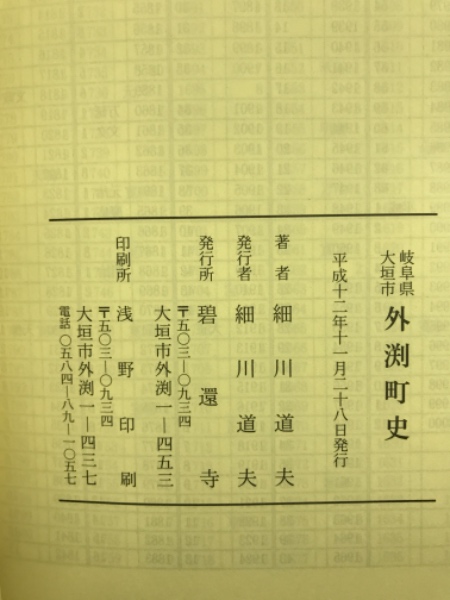 岐阜県
大垣市 外渕町史
平成十二年十一月二十八日発行
著者 細川道夫
発行者 細川道夫
発行所 碧還寺
〒五〇三―〇九三四
大垣市外渕一―四五三
印刷所 浅野印刷
〒五〇三―〇九三四
大垣市外渕一―四三七
電話 〇五八四―八九―一〇五七